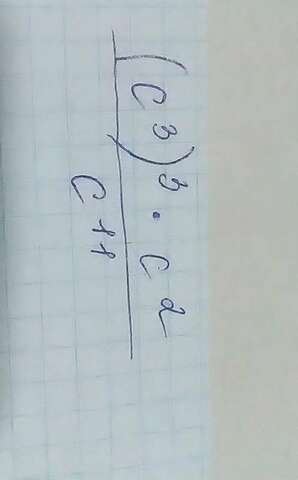 (c³)³ · c²
c¹¹